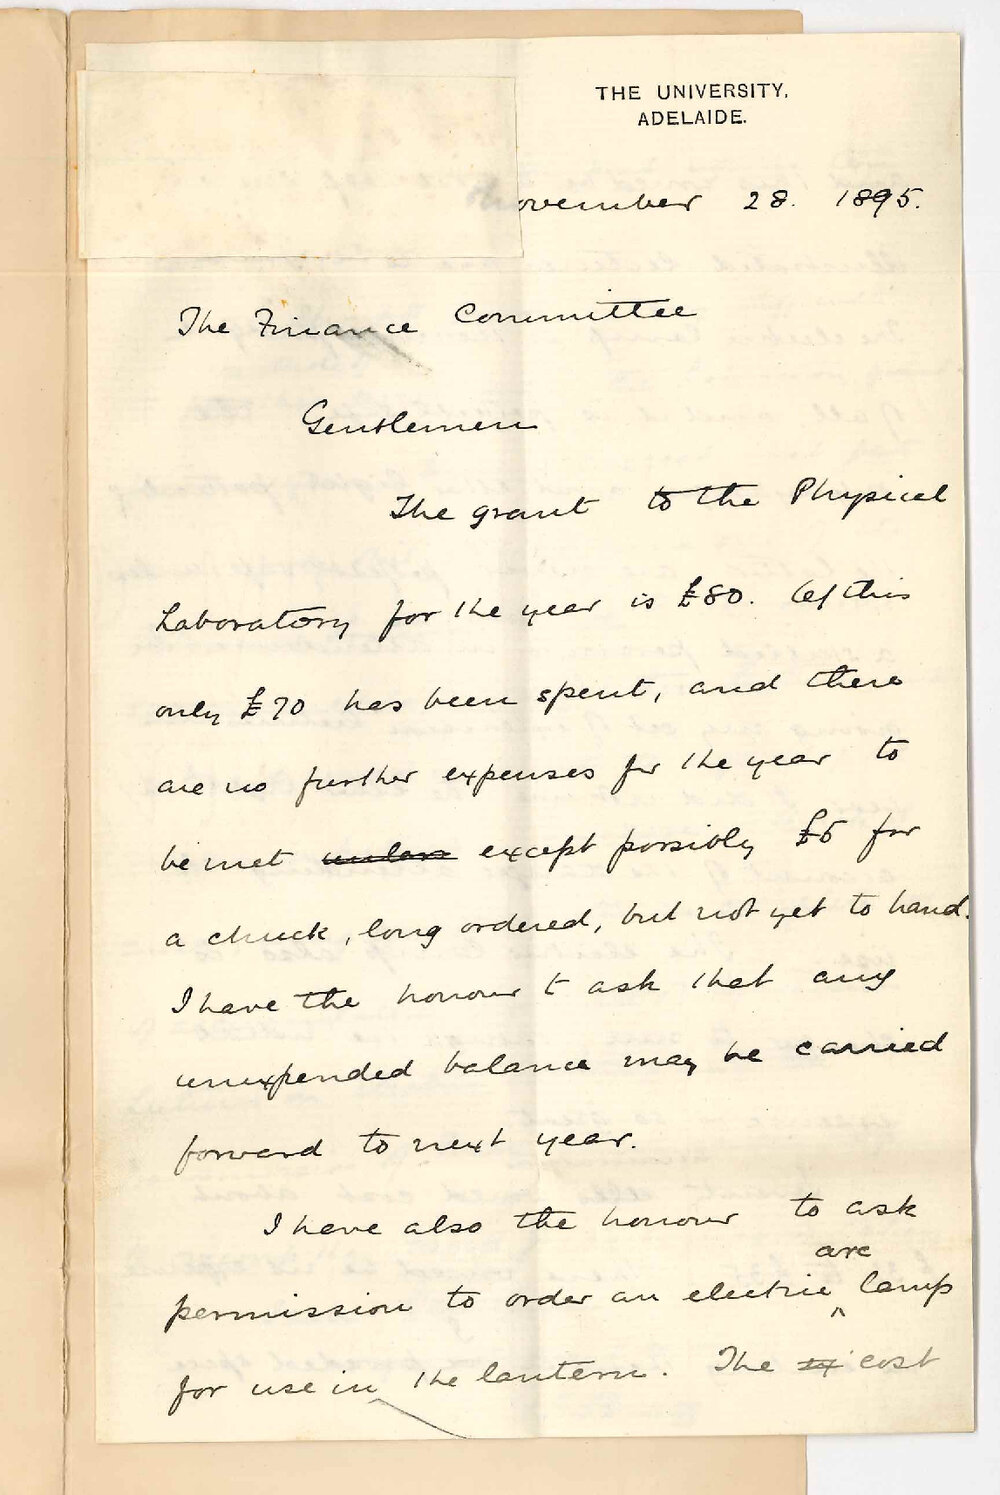 THE UNIVERSITY,
ADELAIDE.
November 28. 1895.
The Finance Committee
Gentlemen
The grant to the Physical
Laboratory for the year is £80. Of this
only £70 has been spent, and there
are no further expenses for the year to
be met unless except possibly £5 for
a chuck, long ordered, but not yet to hand.
I have the honour to ask that any
unexpended balance may be carried
forward to next year.
I have also the honour to ask
permission to order an electric arc lamp
for use in the lantern. The cost